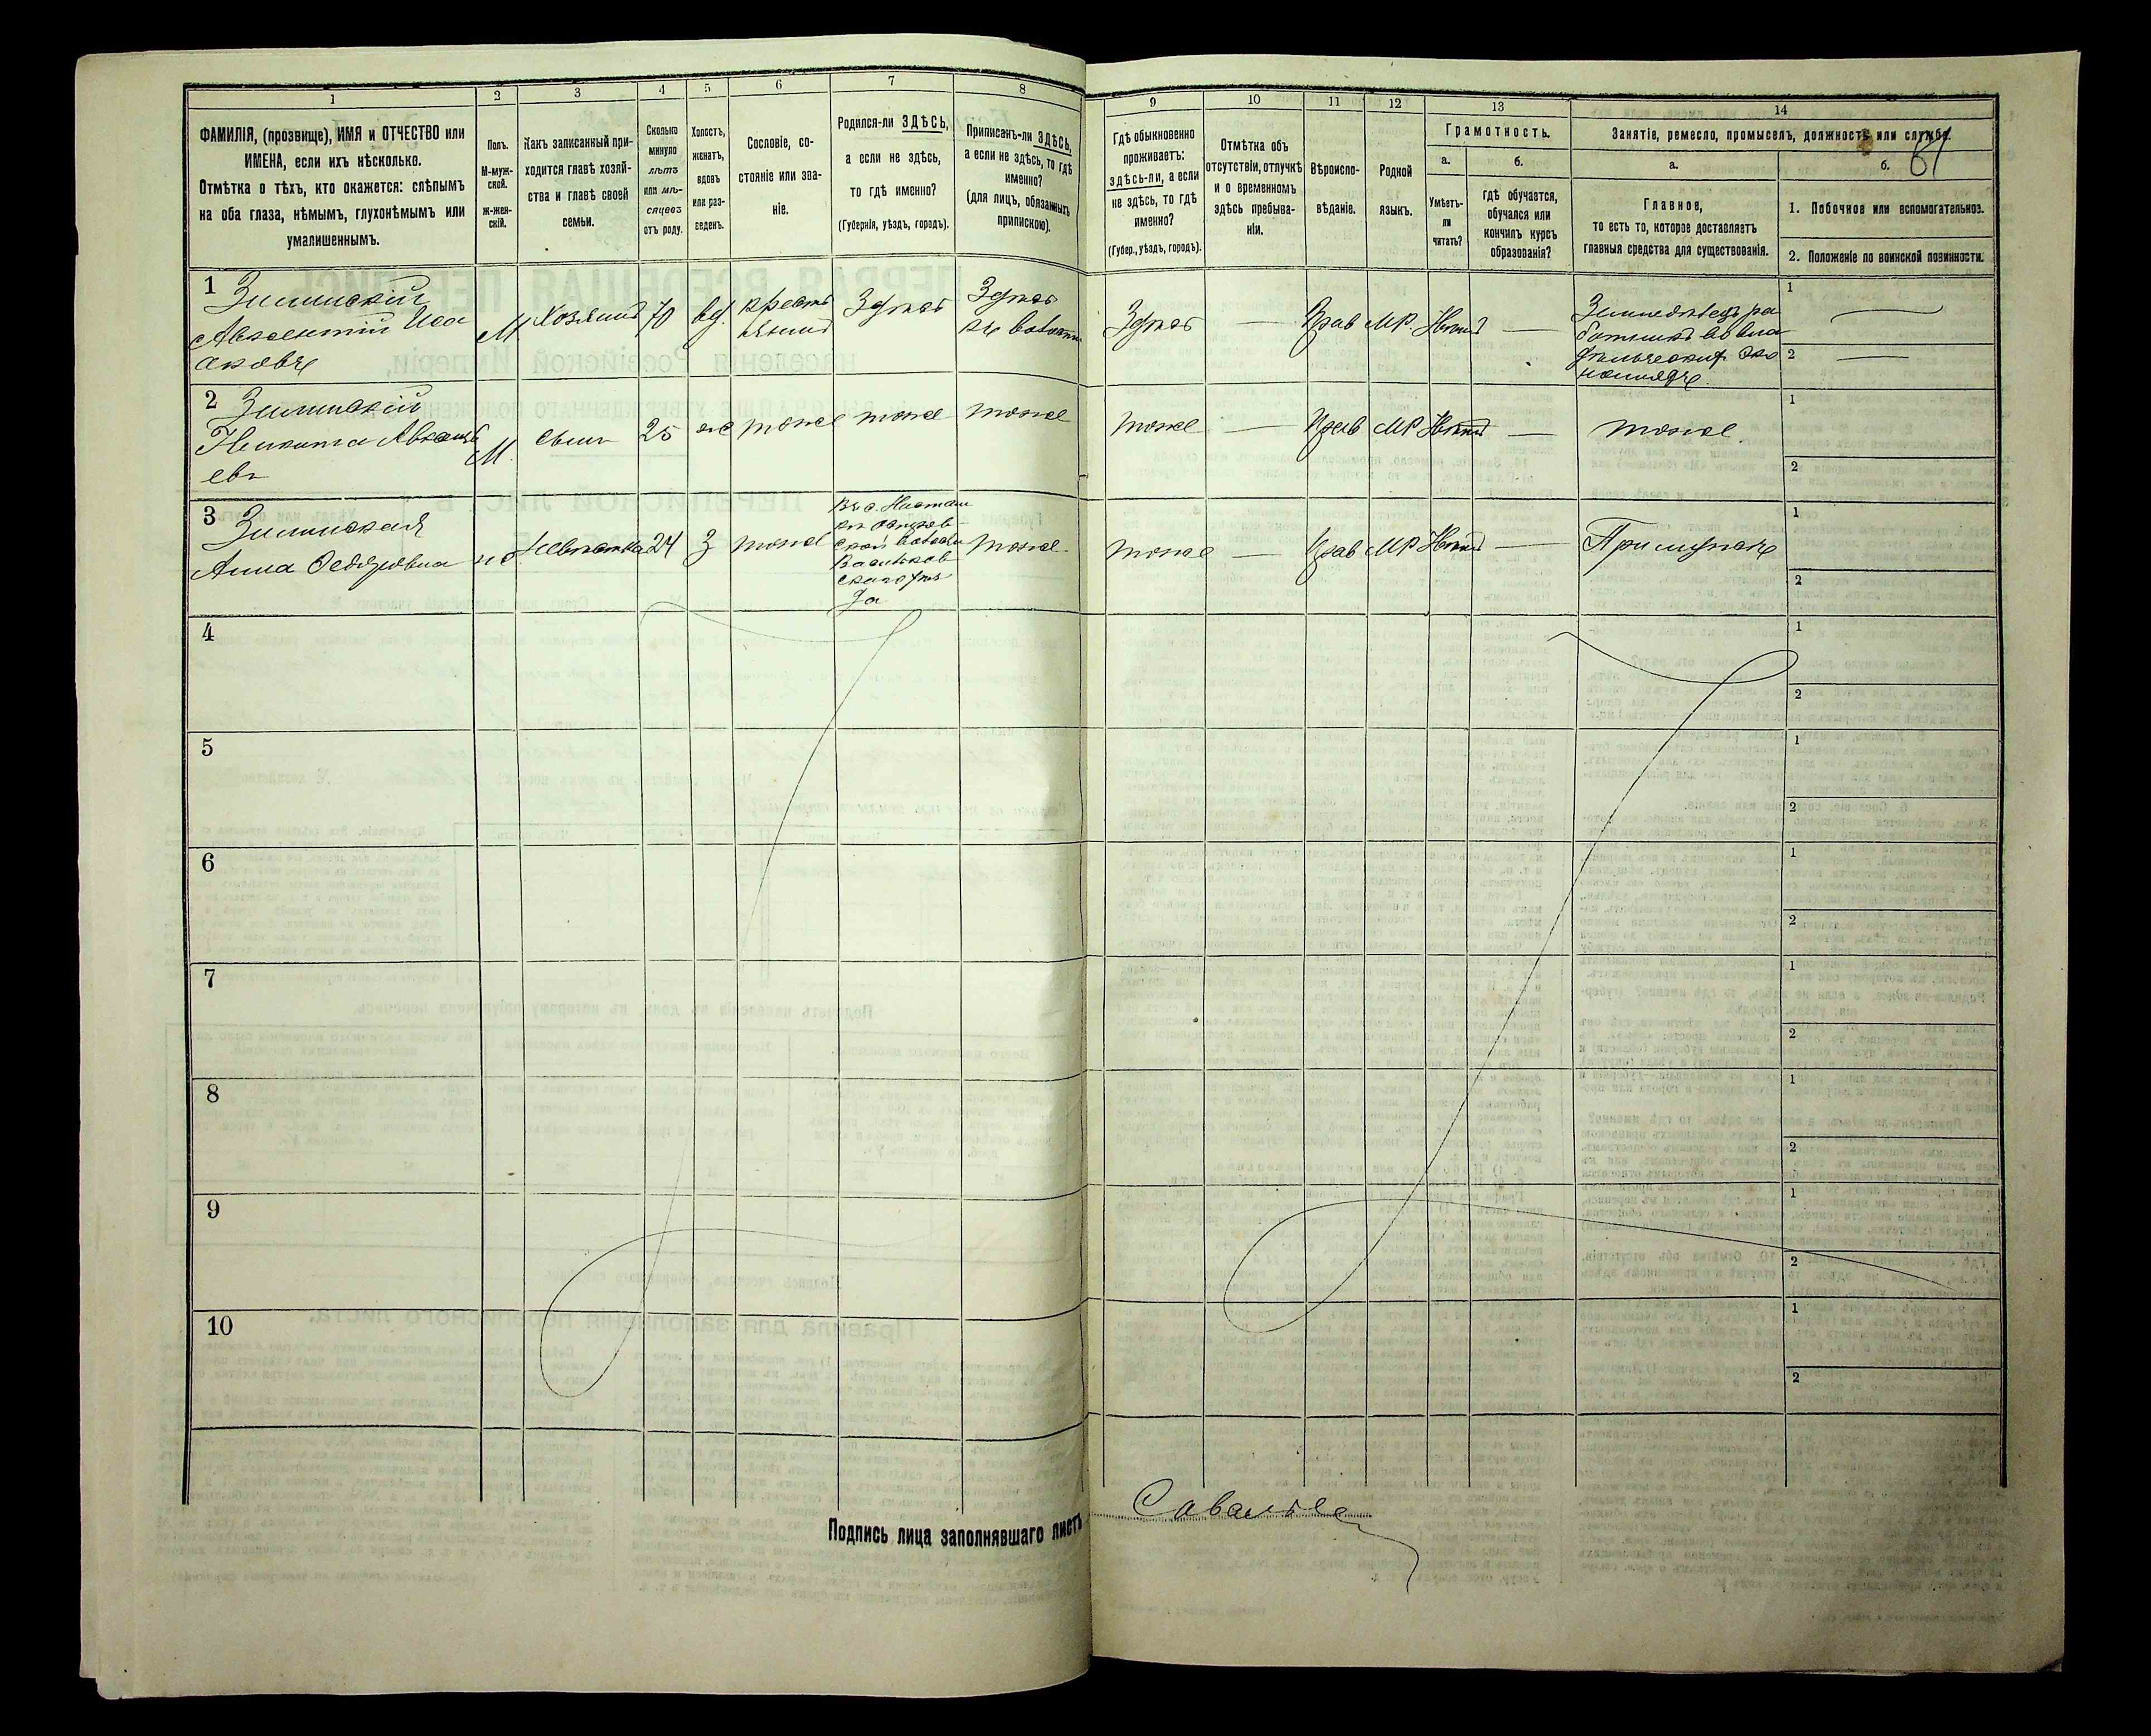 1
2
3
4
5
6
7
8
ФАМИЛІЯ, (прозвище), ИМЯ и ОТЧЕСТВО или
ИМЕНА, если ихъ нѣсколько.
Отмѣтка о тѣхъ, кто окажется: слѣпымъ
на оба глаза, нѣмымъ, глухонѣмымъ или
умалишеннымъ.
Полъ.
М-муж-
ской.
Ж-жен-
скій.
Какъ записанный при-
ходится главѣ хозяй-
ства и главѣ своей
семьи.
Сколько
минуло
лѣтъ
или мѣ-
сяцевъ
отъ роду.
Холостъ,
женатъ,
вдовъ
или раз-
веденъ.
Сословіе, со-
стояніе или зва-
ніе.
Родился-ли ЗДѢСЬ,
а если не здѣсь,
то гдѣ именно?
(Губернія, уѣздъ, городъ).
Приписанъ-ли ЗДѢСЬ,
а если не здѣсь, то гдѣ
именно?
(для лицъ, обязанныхъ
припискою).
9
10
11
12
13
14
Гдѣ обыкновенно
проживаетъ:
здѣсь-ли, а если
не здѣсь, то гдѣ
именно?
(Губер., уѣздъ, городъ).
Отмѣтка объ
отсутствіи, отлучкѣ
и о временномъ
здѣсь пребыва-
ніи.
Вѣроиспо-
вѣданіе.
Родной
языкъ.
Грамотность.
а.
б.
Умѣетъ-
ли
читать?
Гдѣ обучается,
обучался или
кончилъ курсъ
образованія?
Занятіе, ремесло, промыселъ, должность или служба.
61
а.
б.
Главное,
то есть то, которое доставляетъ
главныя средства для существованія.
1. Побочное или вспомогательное.
2. Положеніе по воинской повинности.
1
Зилинскій
Авксентій Иса
аковъ
М.
Хозяинъ
70
вд.
крестъ
янинъ
Здѣсь
Здѣсь
въ волости
Здѣсь
—
Прав
МР.
Нѣтъ
—
Земледѣлецъ ра
ботникъ во вла
дѣльческих эко
номіяхъ.
1 —
2 —
2
Зилинскій
Никита Авксенть
евъ
М.
сынъ
25
ж
тоже
тоже
тоже
тоже
—
Прав
МР
Нѣтъ
—
тоже.
1
2
3
Зилинская
Анна Федоровна
ж
Невѣстка
24
З
тоже
скаго уѣз
да
тоже
тоже
—
Прав
МР
Нѣтъ
—
При мужѣ
1
2
4
1
2
5
1
2
6
1
2
7
1
2
8
1
2
9
1
2
10
1
2
Подпись лица заполнявшаго листъ